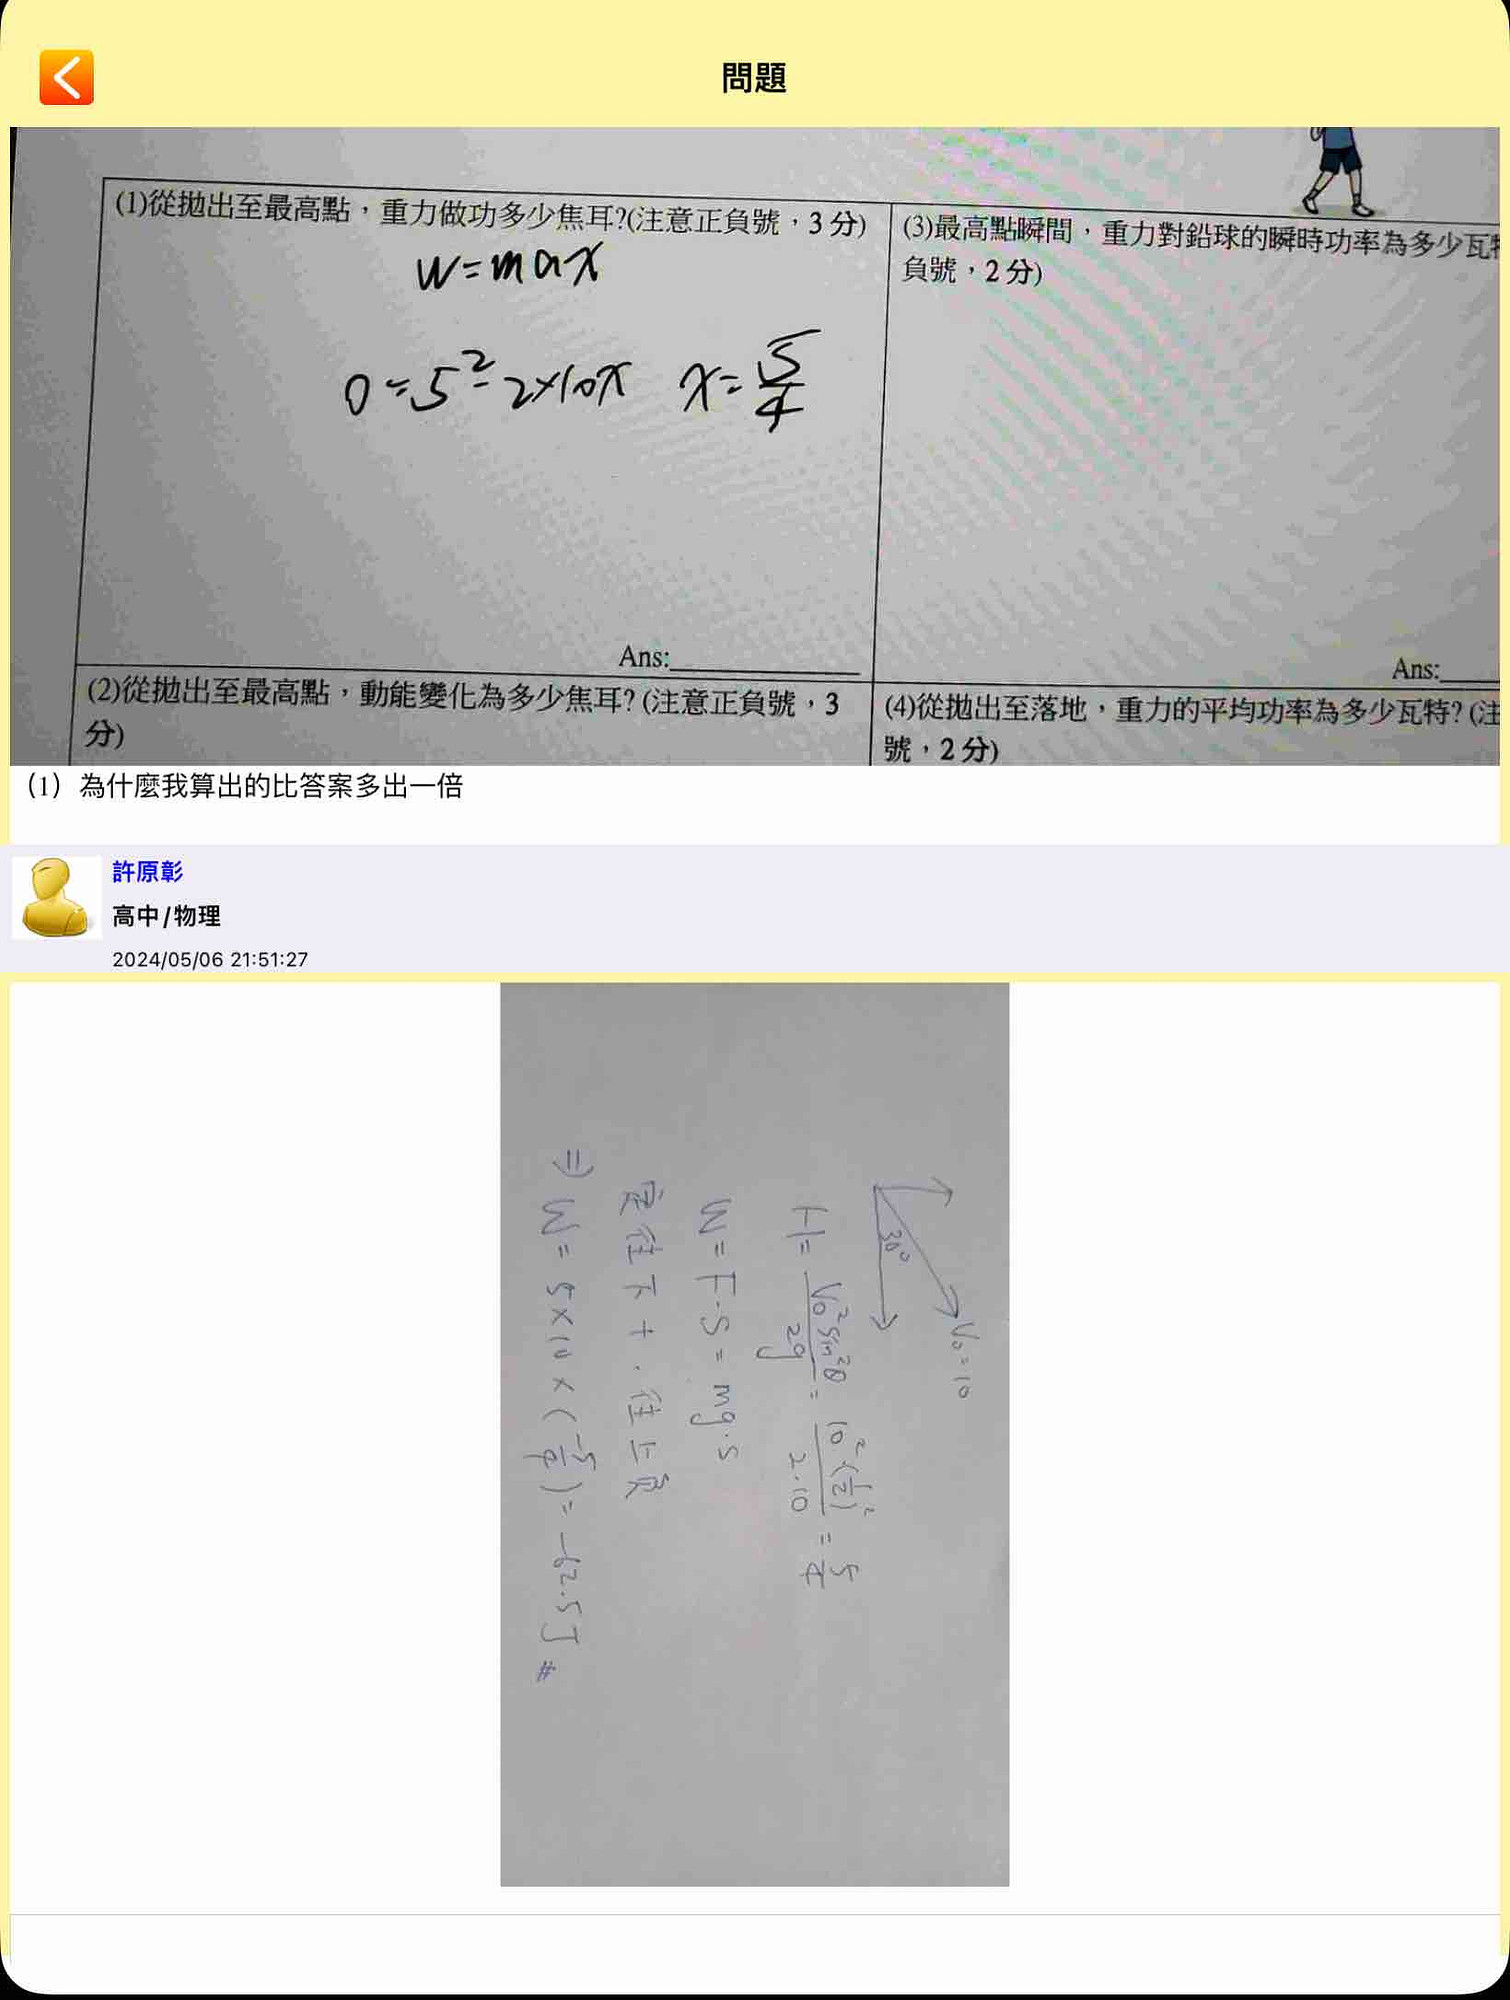 問題
(1)從拋出至最高點，重力做功多少焦耳?(注意正負號，3分)
W=max
0=5²-2×10x x=5/4
Ans:
(2)從拋出至最高點，動能變化為多少焦耳?(注意正負號，3
分)
(3)最高點瞬間，重力對鉛球的瞬時功率為多少瓦特
負號，2分)
Ans:
(4)從拋出至落地，重力的平均功率為多少瓦特?(注
號，2分)
(1) 為什麼我算出的比答案多出一倍
許原彰
高中/物理
2024/05/06 21:51:27
30° V₀=10
H=V₀²sin²θ/2g=10²·(1/2)²/2·10=5/4
W=F·S=mg·S
定往下+.往上負
⇒W=5×10×(-5/4)=-62.5J#